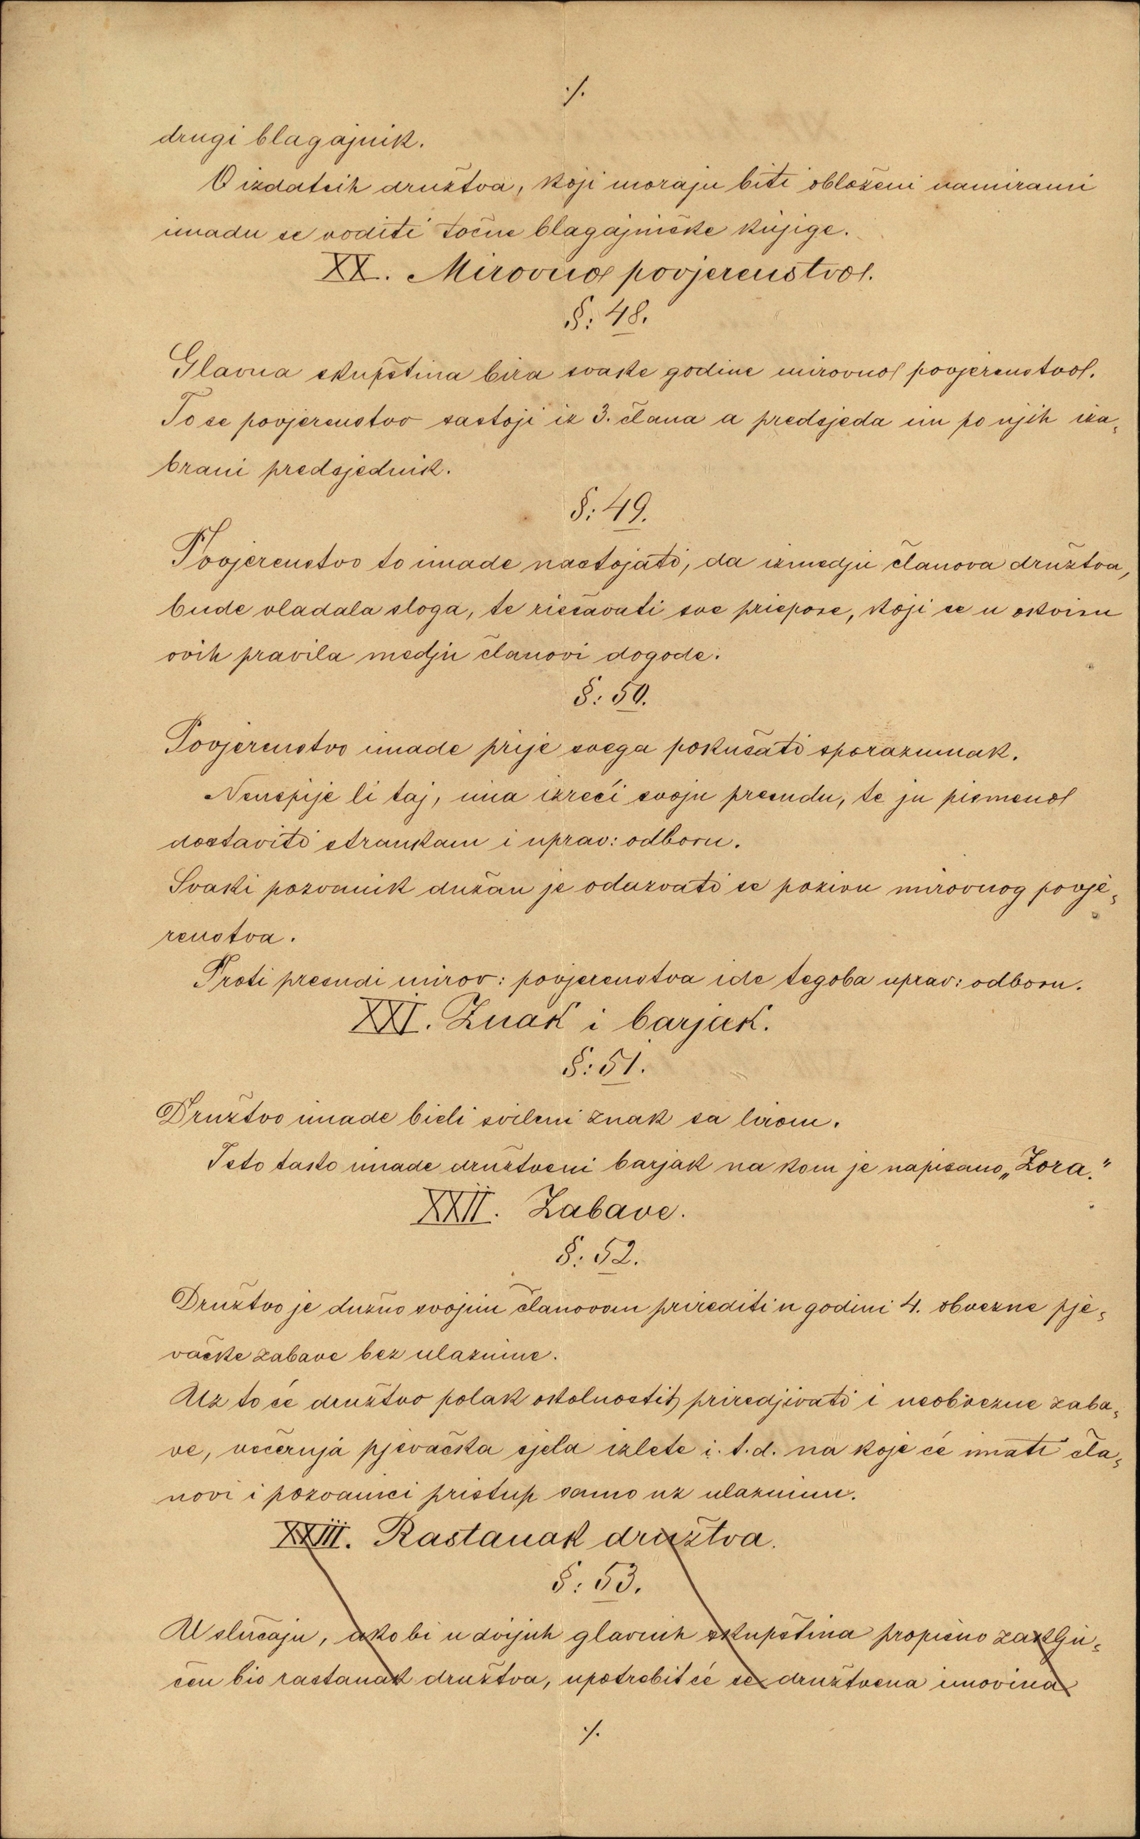 ·/.
drugi blagajnik.
O izdatcih družtva, koji moraju biti obloženi namirami
imadu se voditi točne blagajničke knjige.
XX. Mirovno povjerenstvo.
§: 48.
Glavna skupština bira svake godine mirovno povjerenstvo.
To se povjerenstvo sastoji iz 3. člana a predsjeda im po njih iza-
brani predsjednik.
§: 49.
Povjerenstvo to imade nastojati, da izmedju članova družtva,
bude vladala sloga, te riešavati sve priepore, koji se u okviru
ovih pravila medju članovi dogode.
§: 50.
Povjerenstvo imade prije svega pokušati sporazumak.
Neuspije li taj, ima izreći svoju presudu, te ju pismeno
dostaviti strankam i uprav: odboru.
Svaki pozvanik dužan je odazvati se pozivu mirovnog povje-
renstva.
Proti presudi mirov: povjerenstva ide tegoba uprav: odboru.
XXI. Znak i barjak.
§: 51.
Družtvo imade bieli svileni znak sa lirom.
Isto tako imade družtveni barjak na kom je napisano „Zora."
XXII. Zabave.
§: 52.
Družtvo je dužno svojim članovom prirediti u godini 4. obvezne pje-
vačke zabave bez ulaznine.
Uz to će družtvo polak okolnostih priredjivati i neobvezne zaba-
ve, večernja pjevačka sjela izlete i. t. d. na koje će imati čla-
novi i pozvanici pristup samo uz ulazninu.
XXIII. Rastanak družtva.
§: 53.
U slučaju, ako bi u dvijuh glavnih skupština propisno zaklju-
čen bio rastanak družtva, upotrebit će se družtvena imovina
·/.